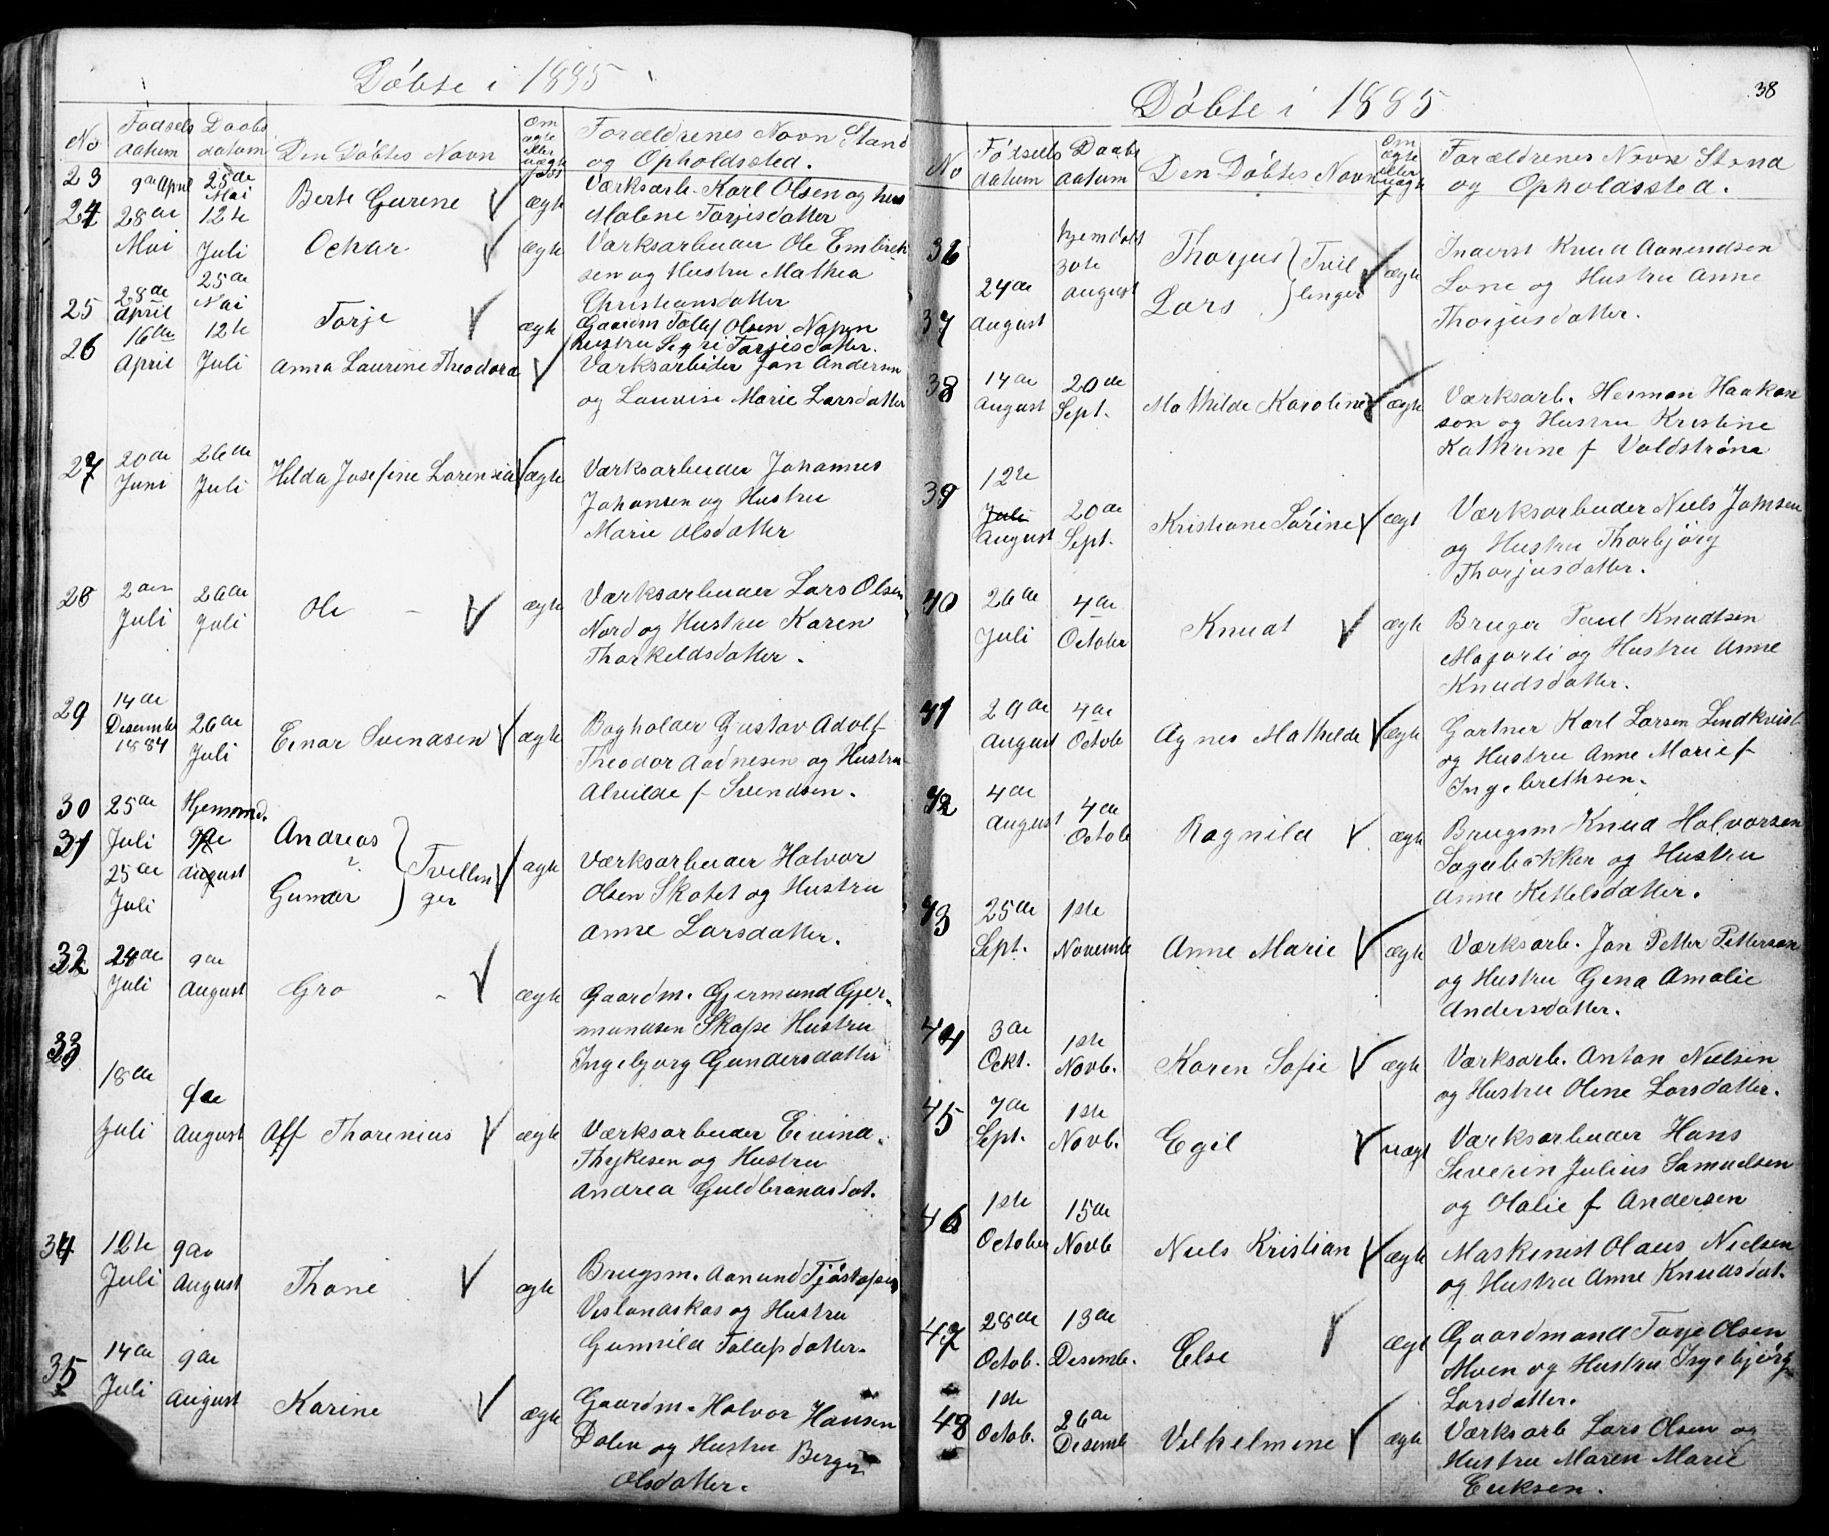 Döbte i 1885
No
Fødsels datum
Daabs datum
Den Döbtes Navn
Om ægte eller uægte født
Forældrenes Navn Stand og Opholdssted.
23 9de April 25de Mai Berte Gurine ægte Værksarb. Karl Olsen og hus
Malene Torjesdatter
24 28de Mai 12te Juli Ockar ægte Værksarbeider Ole Embrek-
sen og Hustru Mathea
Christiansdatter
25 28de April 25de Mai Torje ægte Gaardm Tollef Olsen
hustru Sigri Torjesdatter.
26 16de April 12te Juli Anna Laurine Theodora Værksarbeider Jan Andersen
og Lauvise Marie Larsdatter
27 20de Juni 26de Juli Hilda Josefine Lorensia ægte Værksarbeider Johannes
Johansen og Hustru
Marie Olsdatter
28 2den Juli 26de Juli Ole - ægte Værksarbeider Lars Olsen
Nord og Hustru Karen
Thorkeldsdatter.
29 14de Desember 1884 26de Juli Einar Svendsen ægte Bogholder Gustav Adolf
Theodor Aadnesen og Hustru
Alvilde f Svendsen.
30 25de Juli Hjemmed. 9de August Andreas
31 25de Juli Gunder } Tvillinger ægte Værksarbeider Halvor
Olsen Skotet og Hustru
Anne Larsdatter.
32 28de Juli 9de August Gro - ægte Gaardm. Gjermund Gjer-
mundsen Skafse Hustru
Ingebjorg Gundersdatter
33 18de Juli 9de August Alf Thorenius ægte Værksarbeider Eivind
Thykesen og Hustru
Andrea Guldbrandsdat.
34 12te Juli 9de August Thone ægte Brugsm. Aanund Tjöstofsen
Veslandskas og Hustru
Gunnild Tollefsdatter.
35 14de Juli 9de August Karine ægte Gaardm. Halvor Hansen
Dalen og Hustru Berger
Olsdatter.
38
Döbte i 1885
No
Fødsels datum
Daabs datum
Den Döbtes Navn
Om ægte eller uægte f
Forældrenes Navn Stand
og Opholdssted.
36 24de August hjemdøbt 30te August Thorjus
37 Lars } Tvillinger ægte Inderst Knud Aanundsen
Lone og Hustru Anne
Thorjusdatter.
38 14de August 20de Sept. Mathilde Karoline ægte Værksarb. Herman Haakon
son og Hustru Kristine
Kathrine f Valdstrøm
39 12te Juli August 20de Sept. Kristiane Sörine ægt Værksarbeider Niels Jamsen
og Hustru Thorbjörg
Thorjusdatter.
40 26de Juli 4de October Knudt ægte Bruger Poul Knudtsen
Maforli og Hustru Anne
Knudsdatter.
41 29de August 4de Octob Agnes Mathilde ægte Gartner Karl Larsen Lindkvist
og Hustru Anne Marie f
Ingebrethsen.
42 4de August 4de Octob Ragnild ægte Brugsm Knud Halvorsen
Sagebakken og Hustru
Anne Kittelsdatter.
43 25de Sept. 1ste Novemb Anne Marie ægte Værksarb. Jan Petter Petterson
og Hustru Gina Amalie
Andersdatter.
44 3de Ockt. 1ste Novb. Karen Sofie ægte Værksarb. Anton Nielsen
og Hustru Oline Larsdatter.
45 7de Sept. 1ste Novb. Egil uægt Værksarbeider Hans
Severin Julius Samuelsen
og Halie f Andersen
46 1ste October 15de Novb Niels Kristian ægte Maskinist Olaus Nielsen
og Hustru Anne Knudsdat.
47 28de Octob. 13de Desemb. Else ægt Gaardmand Torje Olsen
Moen og Hustru Ingebjörg
Larsdatter.
48 1ste Octob. 26de Desemb Vilhelmine ægte Værksarb Lars Olsen og
Hustru Maren Marie
Eriksen.